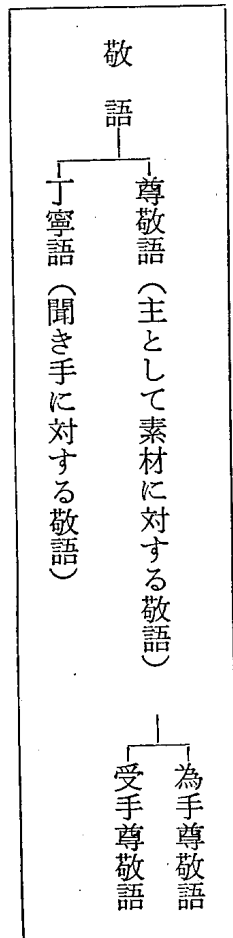 敬語
尊敬語（主として素材に対する敬語）
為手尊敬語
受手尊敬語
丁寧語（聞き手に対する敬語）